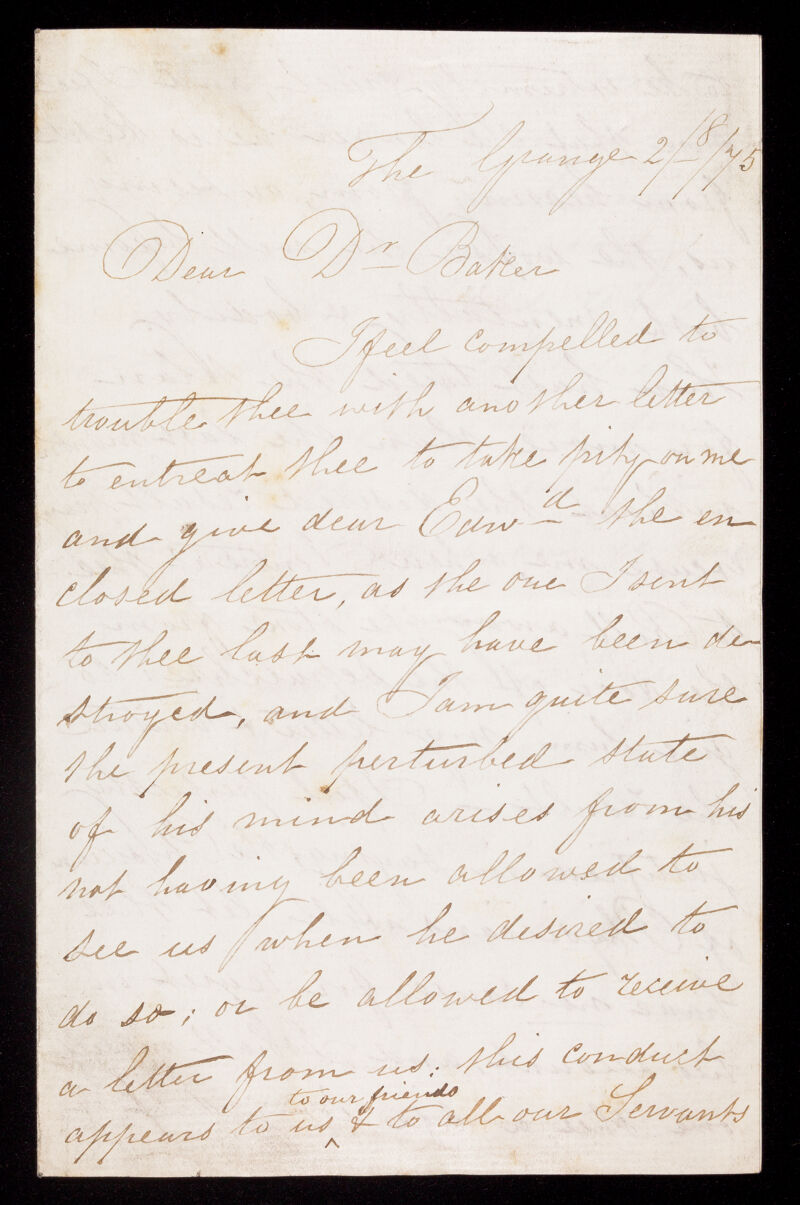 The Grange 2/8/75
Dear Dr Baker
I feel compelled to
trouble thee with another letter
to entreat thee to take pity on me
and give dear Edwd the en
closed letter, as the one I sent
to thee last may have been de
stroyed, and I am quite sure
the present perturbed state
of his mind arises from his
not having been allowed to
see us when he desired to
do so; or be allowed to receive
a letter from us: this conduct
to our friends
appears to us ^ & to all our Servants